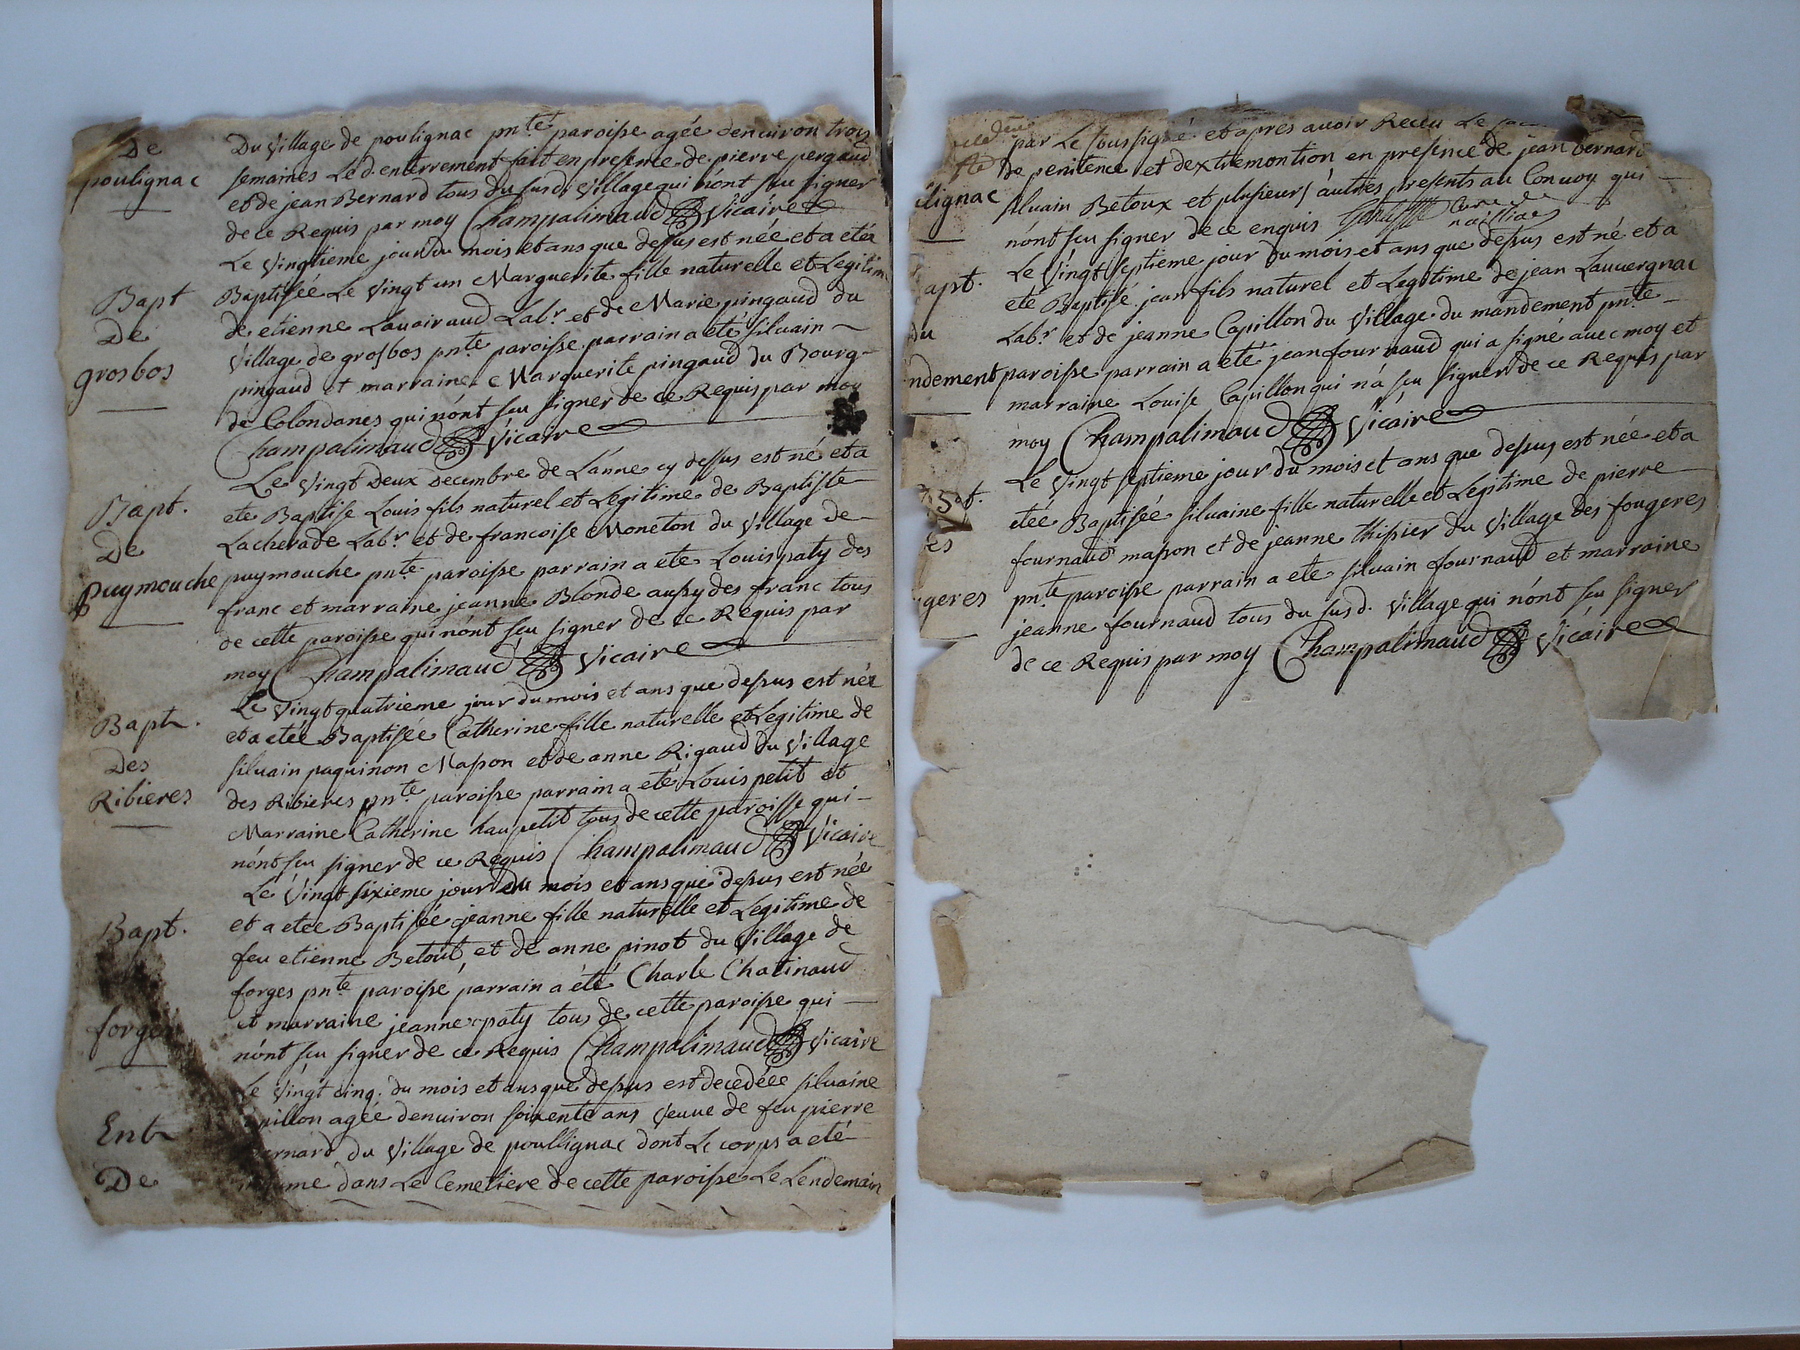 De
poulignac
Du village de poulignac pnte paroisse agée denuiron trois
semaines Led. enterrement fait en presence de pierre pergaud
et de jean Bernard tous du susd. village qui n'ont sçu signer
de ce Requis par moy Champalimaud Vicaire
Bapt
De
grosbos
Le vingtieme jour du mois et ans que dessus est née et a etée
Baptisée Le vingt un Marguerite fille naturelle et Legitime
de etienne Lauairaud Labr. et de Marie pingaud du
village de grosbos pnte paroisse parrain a eté siluain
pingaud et marraine Marguerite pingaud du Bourg
de Colondanes qui n'ont sçu signer de ce Requis par moy
Champalimaud Vicaire
Bapt.
De
puymouche
Le vingt deux decembre de L'anne cy dessus est né et a
ete Baptise Louis fils naturel et Legitime de Baptiste
Lacherade Labr. et de francoise Moneton du village de
puymouche pnte paroisse parrain a ete Louis paty des
franc et marraine jeanne Blonde aussy des franc tous
de cette paroisse qui n'ont sçu signer de ce Requis par
moy Champalimaud Vicaire
Bapt.
Des
Ribieres
Le vingt quatrieme jour du mois et ans que dessus est née
et a etée Baptisée Catherine fille naturelle et Legitime de
siluain paquinon Masson et de anne Rigaud du village
des Ribieres pnte paroisse parrain a eté Louis petit et
Marraine Catherine haupetit tous de cette paroisse qui
n'ont sçu signer de ce Requis Champalimaud Vicaire
Bapt.
forges
Le vingt sixieme jour du mois et ans que dessus est née
et a etee Baptisée jeanne fille naturelle et Legitime de
feu etienne Betout et de anne pinot du village de
forges pnte paroisse parrain a eté Charle Chatinaud
et marraine jeanne paty tous de cette paroisse qui
n'ont sçu signer de ce Requis Champalimaud Vicaire
Ent
De
Le vingt cinq. du mois et ans que dessus est decedéee siluaine
pillon agée denuiron soixente ans veuue de feu pierre
ernard du village de poullignac dont Le corps a eté
ume dans Le Cemetiere de cette paroisse Le Lendemain
lignac
par Le soussigné et apres auoir Receu Le
De penitence et dextremontion en presence de jean Bernard
siluain Betoux et plusieurs autres presents au Conuoy qui
n'ont sçu signer de ce enquis Curé de
naillac
apt.
du
ndement
Le vingt septieme jour du mois et ans que dessus est né et a
eté Baptisé jean fils naturel et Legitime de jean Lauuergnac
Labr. et de jeanne Capillon du village du mandement pnte
paroisse parrain a eté jean fournaud qui a signé auec moy et
marraine Louise Capillon qui n'a sçu signer de ce Requis par
moy Champalimaud Vicaire
pt.
es
geres
Le vingt septieme jour du mois et ans que dessus est née et a
etée Baptisée siluaine fille naturelle et Legitime de pierre
fournaud masson et de jeanne thissier du village des fougeres
pnte paroisse parrain a ete siluain fournaud et marraine
jeanne fournaud tous du susd. village qui n'ont sçu signer
de ce Requis par moy Champalimaud Vicaire